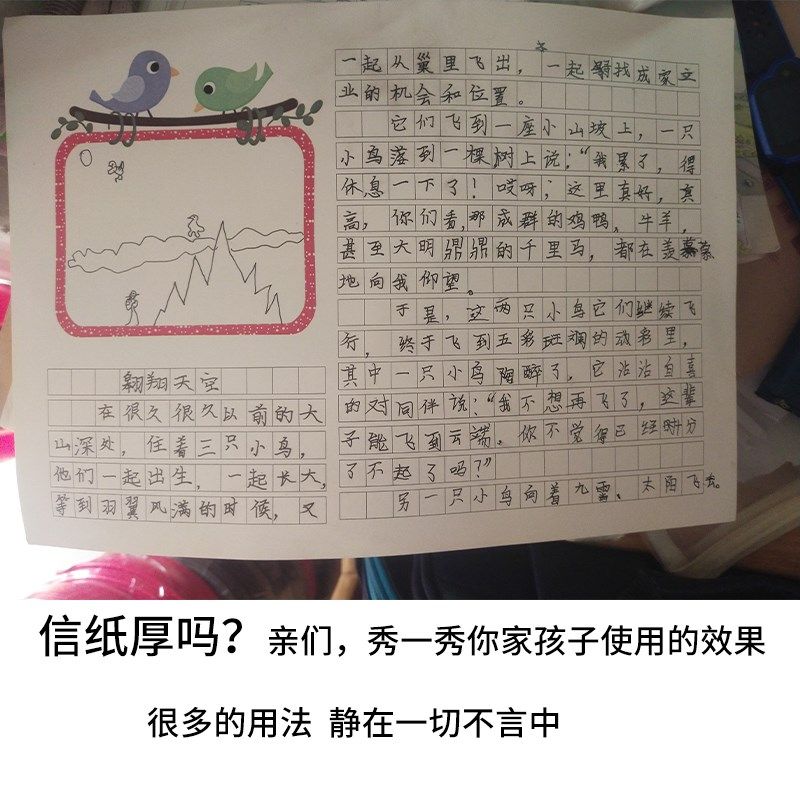 翱翔天空
在很久很久以前的大
山深处，住着三只小鸟，
他们一起出生，一起长大，
等到羽翼风满的时候，又
一起从巢里飞出，一起寻找成家立
业的机会和位置。
它们飞到一座小山坡上，一只
小鸟落到一棵树上说：“我累了，得
休息一下了！哎呀；这里真好，真
高，你们看，那成群的鸡鸭，牛羊，
甚至大明鼎鼎的千里马，都在羡慕
地向我仰望。
于是，这两只小鸟它们继续飞
行，终于飞到五彩斑斓的动彩里，
其中一只小鸟陶醉了，它沾沾自喜
的对同伴说：“我不想再飞了，这辈
子能飞到云端。你不觉得已经时分
了不起了吗？”
另一只小鸟向着九霄、太阳飞去。
信纸厚吗？亲们，秀一秀你家孩子使用的效果
很多的用法 静在一切不言中